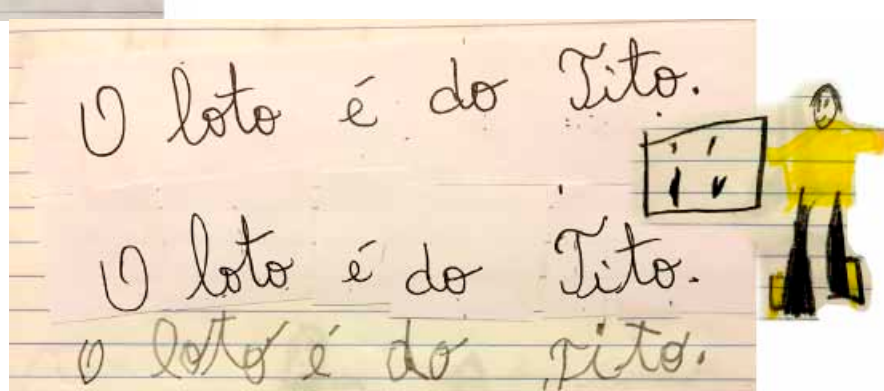 O loto é do Tito.
O loto é do Tito.
o loto é do Tito.